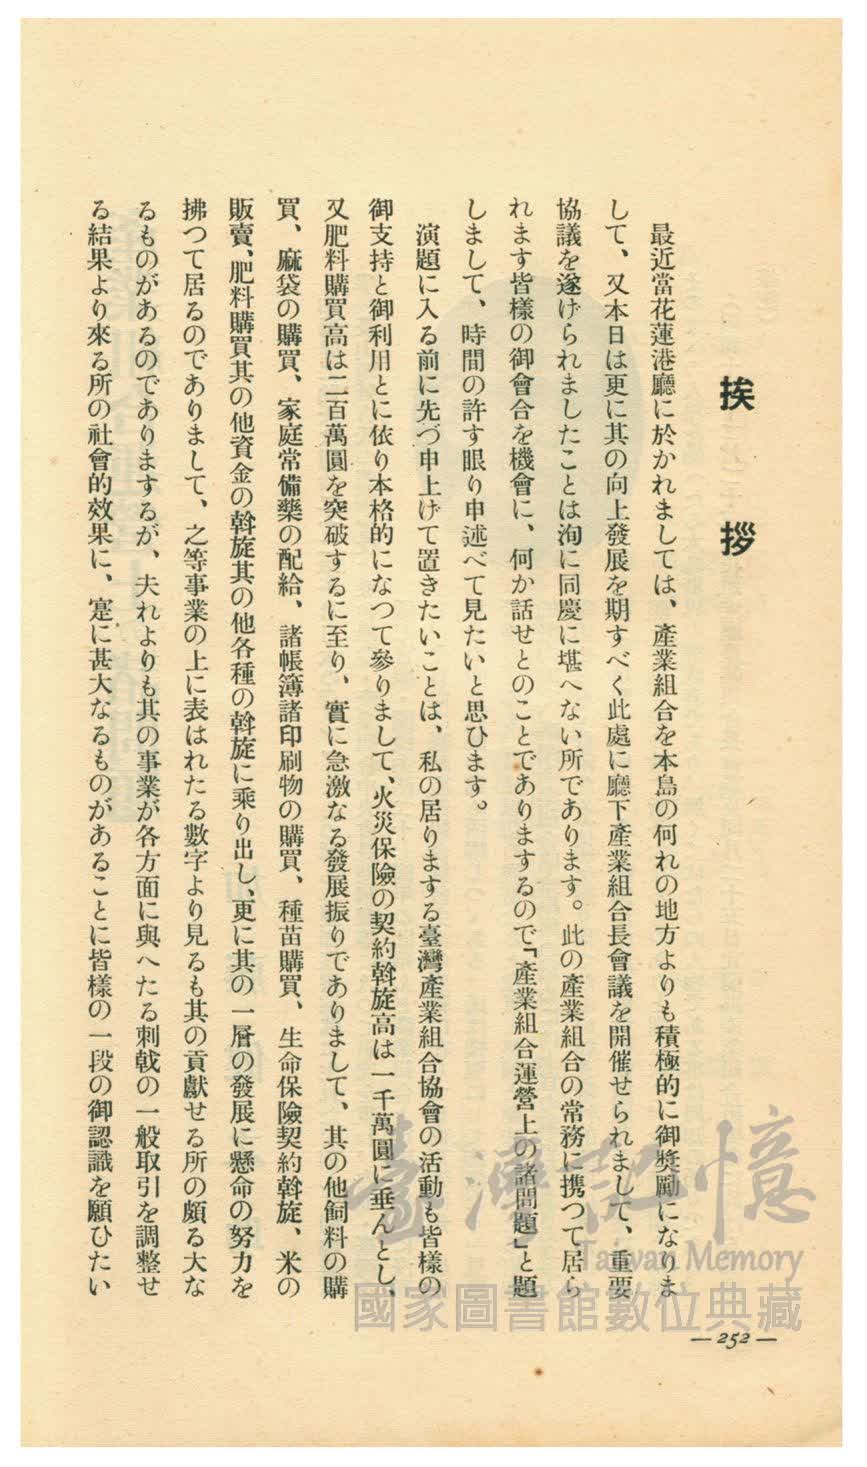 挨拶
最近當花蓮港廳に於かれましては、產業組合を本島の何れの地方よりも積極的に御獎勵になりま
して、又本日は更に其の向上發展を期すべく此處に廳下產業組合長會議を開催せられまして、重要
協議を遂げられましたことは洵に同慶に堪へない所であります。此の產業組合の常務に携つて居ら
れます皆樣の御會合を機會に、何か話せとのことでありまするので『產業組合運營上の諸問題』と題
しまして、時間の許す眼り申述べて見たいと思ひます。
演題に入る前に先づ申上げて置きたいことは、私の居りまする臺灣產業組合協會の活動も皆樣の
御支持と御利用とに依り本格的になつて參りまして、火災保險の契約斡旋高は一千萬圓に垂んとし、
又肥料購買高は二百萬圓を突破するに至り、實に急激なる發展振りでありまして、其の他飼料の購
買、麻袋の購買、家庭常備藥の配給、諸帳簿諸印刷物の購買、種苗購買、生命保險契約斡旋、米の
販賣、肥料購買其の他資金の斡旋其の他各種の斡旋に乘り出し、更に其の一層の發展に懸命の努力を
拂つて居るのでありまして、之等事業の上に表はれたる數字より見るも其の貢獻せる所の頗る大な
るものがあるのでありまするが、夫れよりも其の事業が各方面に與へたる刺戟の一般取引を調整せ
る結果より來る所の社會的效果に、寔に甚大なるものがあることに皆樣の一段の御認識を願ひたい
臺灣記憶
Taiwan Memory
國家圖書館數位典藏
— 252 —